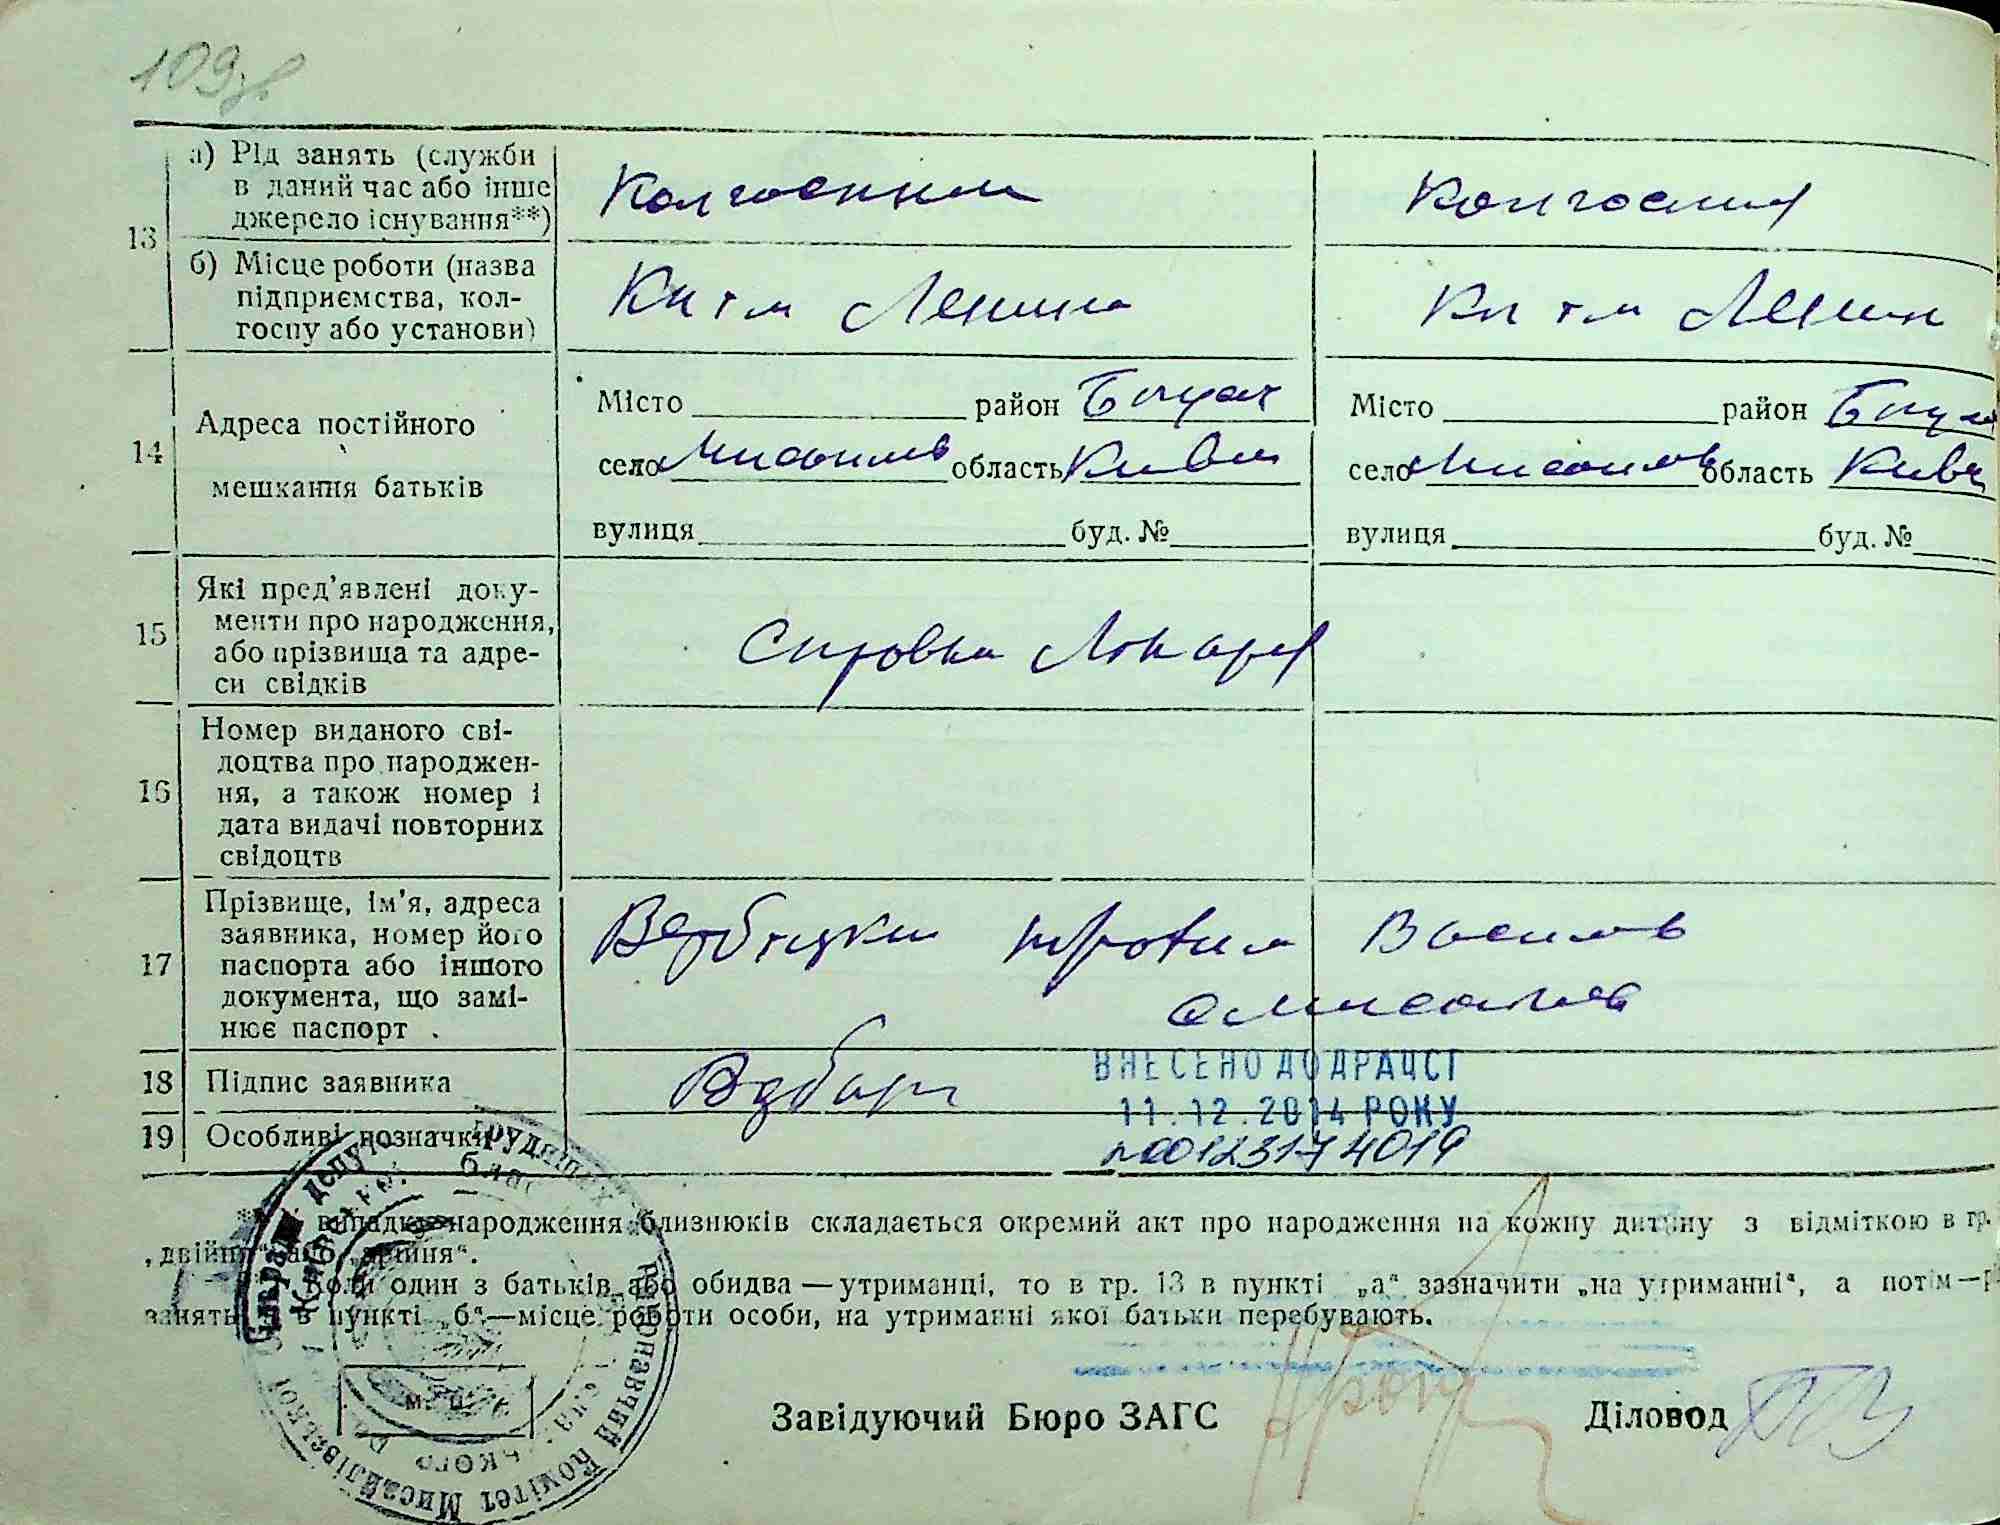 109зв
13 а) Рід занять (служби
в даний час або інше
джерело існування**)
Колгоспник
Колгоспн
б) Місце роботи (назва
підприємства, кол-
госпу або установи)
Леніна
Ленін
14 Адреса постійного
мешкання батьків
Місто район Богусл
село Мисайлів область Київ
вулиця буд. №
Місто район Богу
село Мисайлів область Київ
вулиця буд. №
15 Які пред'явлені доку-
менти про народження,
або прізвища та адре-
си свідків
Справка Лікаря
16 Номер виданого сві-
доцтва про народжен-
ня, а також номер і
дата видачі повторних
свідоцтв
17 Прізвище, ім'я, адреса
заявника, номер його
паспорта або іншого
документа, що замі-
нює паспорт
Вербицки Трофим Василів
с Мисайлів
18 Підпис заявника
ВНЕСЕНО ДО ДРАЦСГ
11.12.2014 РОКУ
19 Особливі позначки
№00123174019
випадку народження близнюків складається окремий акт про народження на кожну дитину з відміткою в гр.
„двійня“ або „трійня“.
Коли один з батьків або обидва — утриманці, то в гр. 13 в пункті „а“ зазначити „на утриманні“, а потім —
занять, в пункті „б“—місце роботи особи, на утриманні якої батьки перебувають.
М. П.
Виконавчий Комітет Мисайлівської
Завідуючий Бюро ЗАГС Діловод